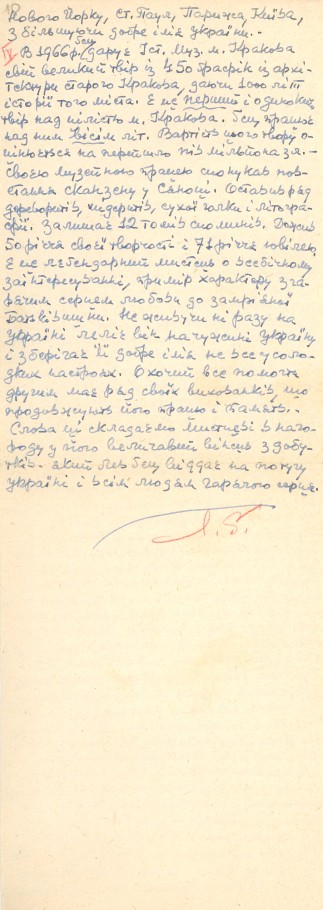 Нового Йорку, ст. Паул, Парижа, Київа,
збільшуючи добре імія України.-
IV В 1966 р. беи дарує Іст. Муз. м. Кракова
свій великий твір із 450 графік із архі-
тектури старого Кракова, даючи 1000 літ
історії того міста. Е це перший і одинокий
твір над цілість м. Кракова. беи працює
над ним вісім літ. Вартість цього твору о-
цінюється на перешло пів мільйона зл.-
Своєю музейною працею спонукав пов-
стання скансену у Сяноці. Оставив ряд
дереворитів, мідеритів, сухої голки і літогра-
фії. Залишає 12 томів споминів. Досяг
50 річчя своєї творчості і 71 річчя ювілею.
Е це легендарний мистець о всебічному
заінтересуванні, примір характеру з га-
рячим серцем любови до
Батьківщини. Не живучи ні разу на
Україні леліє він на чужині Україну
і зберігає її добре імія не все у соло-
дких настроях. Охочий все помогти
другим має ряд своїх вихованків, що
продовжують його працю і память.
Слова ці складаємо мистцеві в наго-
роду у його величавий вінець з добу-
тків. який Лев беи віддає на потугу
Україні і всім людям гарячого серця.
Л. Б.